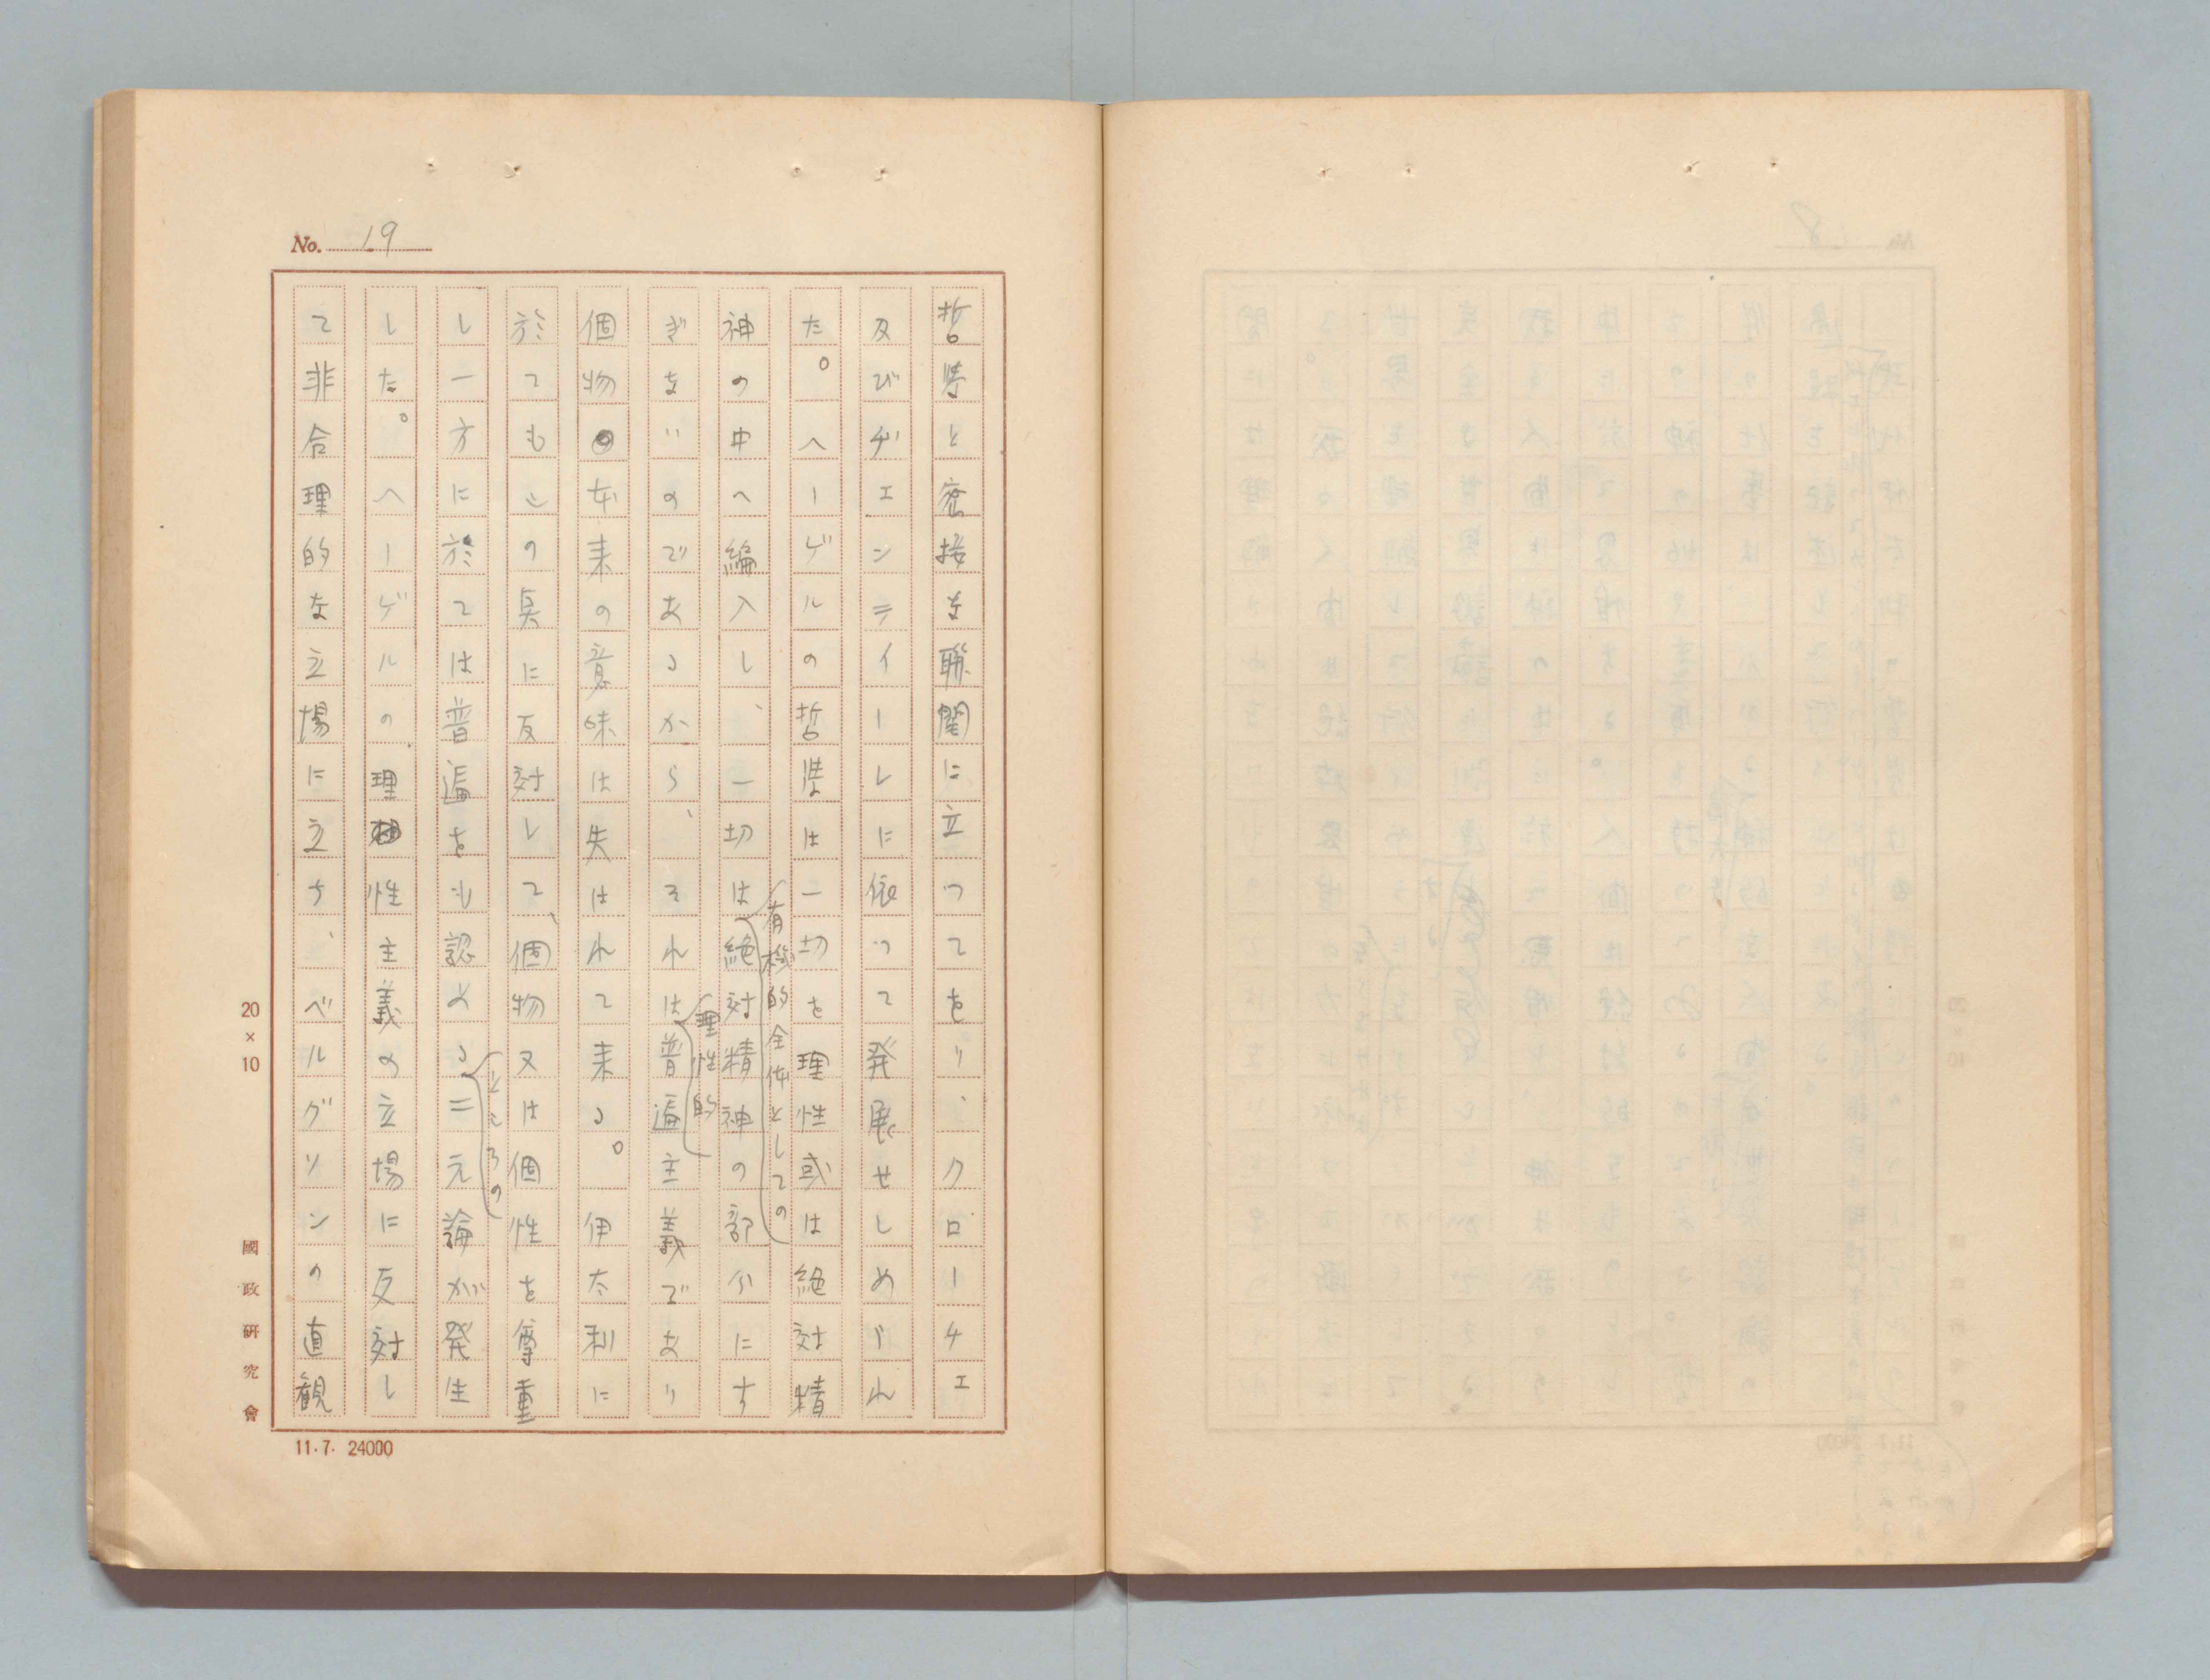 No. 19
哲学と密接な聯関に立つてをり、クローチェ
及びヂェンティーレに依つて発展せしめられ
た。ヘーゲルの哲学は一切を理性或は絶対精
有機的全体としての
神の中へ編入し、一切は絶対精神の部分にす
理性的
ぎないのであるから、それは普遍主義であり
個物の本来の意味は失はれて来る。伊太利に
於てもこの点に反対して、個物又は個性を尊重
ところの
し一方に於ては普遍をも認める二元論が発生
した。ヘーゲルの理性主義の立場に反対し
て非合理的な立場に立ち、ベルグソンの直観
20×10
國政研究會
11.7. 24000